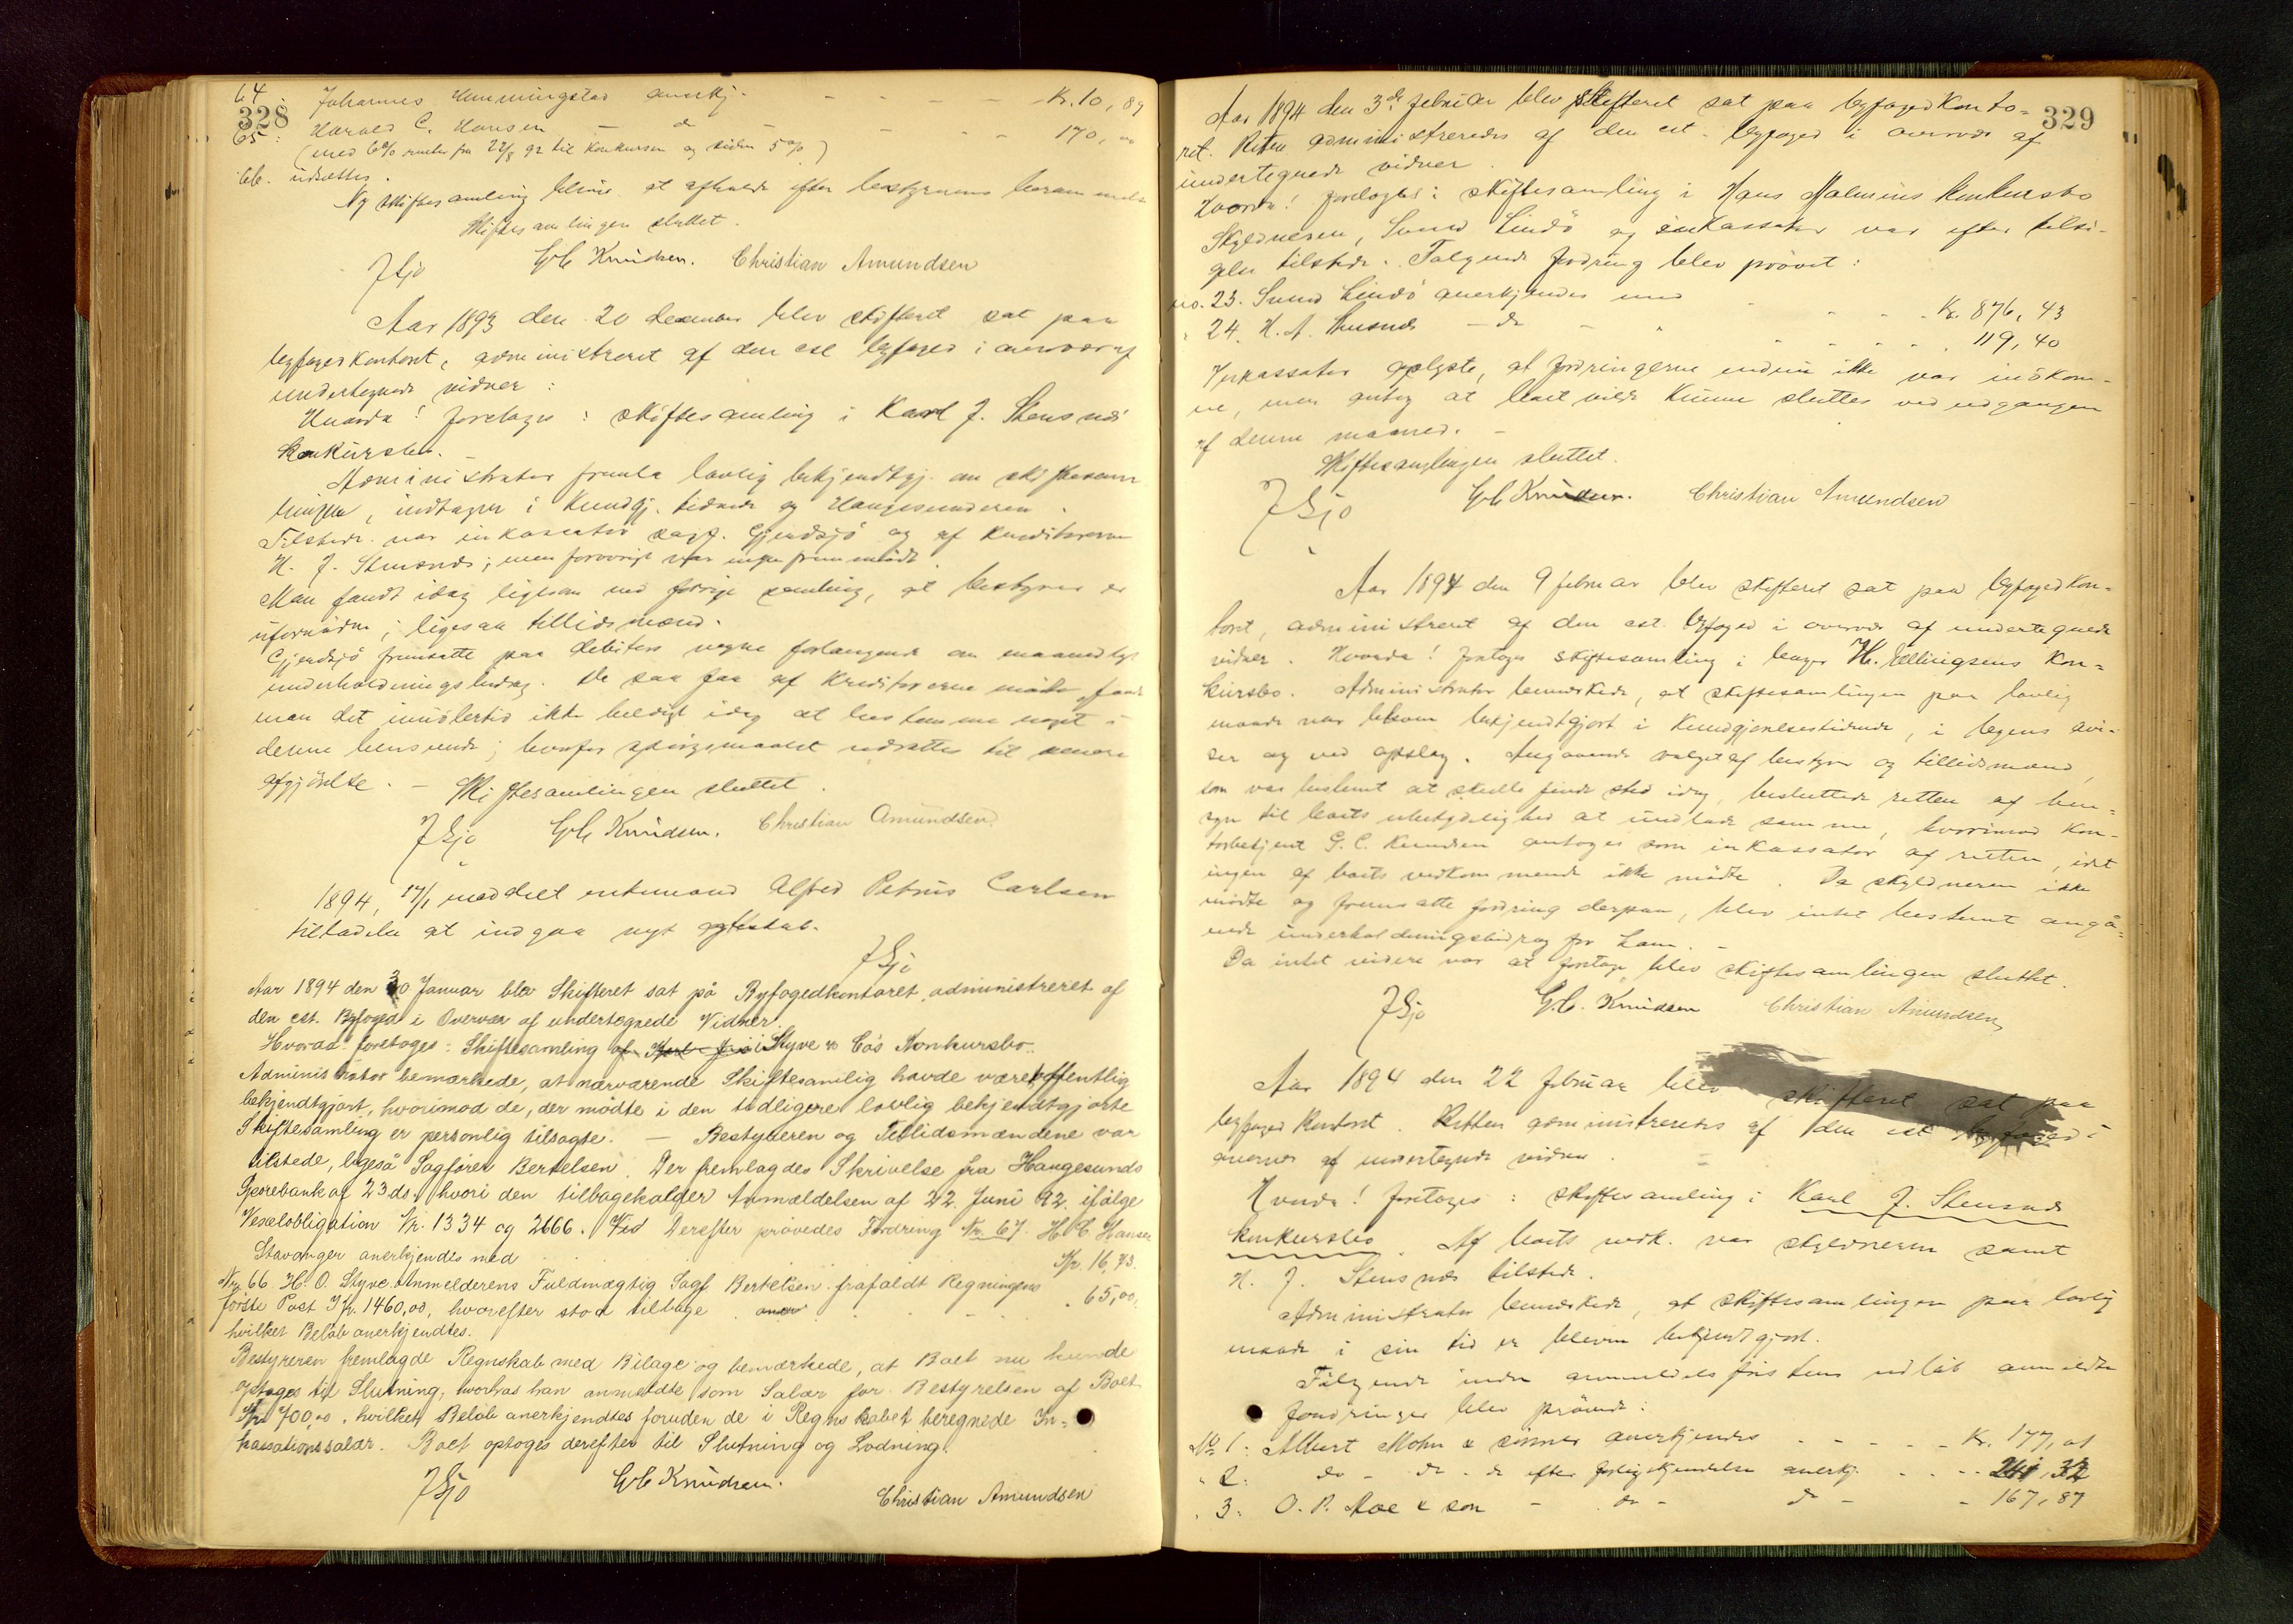 328
64. Johannes Hemmingstad anerkj. - - - - - Kr. 10,89
65. Harald C. Hansen - d - - - - 170,00
(med 6% renter fra 22/8 92 til konkursen og siden 5 %)
66. udsættes.
Ny skiftesamling bliver at afholde efter bestyrerens
Skiftesamlingen sluttet.
JGjø GC Knudsen. Christian Amundsen
Aar 1893 den 20 december blev skifteret sat paa
byfogedkontoret, administreret af den cst byfoged i overvær af
undertegnede vidner:
Hvorda! foretoges: skiftesamling i Karl J. Stensnæs
konkursbo. -
Administrator fremla lovlig bekjendtgj. om skiftesam
lingen, indtagen i Kundgj. tidende og Haugesunderen.
Tilstede var inkassator sagf. Gjendsjø og af kreditorerne
H. J. Stensnæs; men forøvrigt var ingen fremmødt.
Man fandt idag ligesom ved forrige samling, at bestyrer er
ufornøden; ligesaa tillidsmænd.
Gjendsjø fremsatte paa debitors vegne forlangende om maanedligt
underholdningsbidrag. Da saa faa af kreditorerne mødte, fandt
man det imidlertid ikke heldigt idag at bestemme noget i
denne henseende; hvorfor spørgsmaalet udsattes til senere
afgjørelse. - Skiftesamlingen sluttet.
JGjø GC Knudsen. Christian Amundsen.
1894, 17/1 meddelt enkemand Alfred Petrus Carlsen
tilladelse at indgaa nyt ægteskab.
JGjø
Aar 1894 den 30 Januar blev Skifteret sat på Byfogedkontoret, administreret af
den cst. Byfoged i Overvær af undertegnede Vidner.
Hvorda: foretoges: Skiftesamling i Styve & Co's Konkursbo.
Administrator bemærkede, at nærværende Skiftesamlig havde været offentlig
bekjendtgjort, hvorimod de, der mødte i den tidligere lovlig bekjendtgjorte
Skiftesamling er personlig tilsagte. - Bestyreren og Tillidsmændene var
tilstede, ligeså Sagfører Bertelsen. Der fremlagdes Skrivelse fra Haugesunds
Sparebank af 23 ds. hvori den tilbagekalder Anmældelsen af 22. Juni 92. ifølge
Vexelobligation Nr. 1334 og 2666. Vid Derefter prøvedes Fordring Nr. 67. H. C. Hansen
Stavanger anerkjendes med . . . Kr. 16,43.
Nr. 66. H. O. Styve. Anmelderens Fuldmægtig Sagf. Bertelsen frafaldt Regningens
første Post Kr. 1460,00, hvorefter stod tilbage . . . 65,00.
hvilket Beløb anerkjendtes.
Bestyreren fremlagde Regnskab med Bilage og bemærkede, at Boet nu kunde
optages til Slutning, hvorhos han anmeldte som Salær for Bestyrelsen af Boet
Kr. 700,00, hvilket Beløb anerkjendtes foruden de i Regnskabet beregnede In-
kassationssalær. Boet optoges derefter til Slutning og Lodning.
JGjø GC Knudsen. Christian Amundsen
329
Aar 1894 den 3de februar blev skifteret sat paa byfogedkonto-
ret. Retten administreredes af den cst. byfoged i overvær af
undertegnede vidner.
Hvorda! foretoges: skiftesamling i Hans Malmins konkursbo
Skyldneren, Svend Lindø og inkassator var efter tilsi-
gelse tilstede. Følgende fordring blev prøvet:
no. 23. Svend Lindø anerkjendes med - - - - Kr. 876,43
" 24. H. A. Stensnæs - do - " - - - - 119,40
Inkassator oplyste, at fordringerne endnu ikke var indkom-
ne, men antog at boet vilde kunne sluttes ved udgangen
af denne maaned. -
Skiftesamlingen sluttet.
JGjø GC Knudsen. Christian Amundsen
Aar 1894 den 9 februar blev skifteret sat paa byfogedkon-
toret, administreret af den cst. byfoged i overvær af undertegnede
vidner. Hvorda! foretoges skiftesamling i H. Ellingsens kon-
kursbo. Administrator bemærkede, at skiftesamlingen paa lovlig
maade var bekjendtgjort i Kundgjørelsestidende, i byens avi-
ser og ved opslag. Angaaende valget af bestyrer og tillidsmænd,
som var bestemt at skulle finde sted idag, besluttede retten af hen-
syn til boets ubetydelighed at undlade samme, hvorimod kon-
torbetjent G. C. Knudsen antoges som inkassator af retten, idet
ingen af boets vedkommende ikke mødte. Da skyldneren ikke
mødte og fremsatte fordring derpaa, blev intet bestemt angå-
ende underholdningsbidrag for ham. -
Da intet videre var at foretage, blev skiftesamlingen sluttet.
JGjø G.C. Knudsen Christian Amundsen
Aar 1894 den 22 februar blev skifteret sat paa
byfogedkontoret. Retten administreredes af den cst byfoged i
overvær af undertegnede vidner.
Hvorda! foretoges: skiftesamling i Karl J. Stensnæs
konkursbo. Af boets vedk. var skyldneren samt
H. J. Stensnæs tilstede.
Administrator bemærkede, at skiftesamlingen paa lovlig
maade i sin tid er bleven bekjendtgjort.
Følgende inden anmeldelsesfristens udløb anmeldte
fordringer blev prøvede:
No 1: Albert Mohn & sønner anerkjendes - - - - - Kr. 177,01
" 2: do - do - do efter forligskjendelse anerkj. - - - - 241,32
" 3: O. P. Moe & søn - do - do - - 167,87